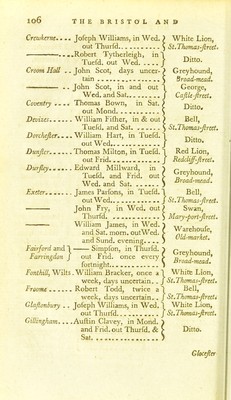 106 THE BRISTOL AND
Crewkerne.... Joseph Williams, in Wed. White Lion,
out Thursd......... St.Thomas-street.
——....Robert Tytherleigh, in
Tuesd. out Wed. .... Ditto.
Croom Hall .. John Scot, days uncer- Greyhound,
tain............... Broad-mead.
—— .. John Scot, in and out George,
Wed. and Sat....... Castle-street.
Coventry .... Thomas Bown, in Sat.
out Mond. ......... Ditto.
Devizes...... William Fisher, in & out Bell,
Tuesd. and Sat. .... St.Thomas-street.
Dorchester.... William Hart, in Tuesd.
out Wed........... Ditto.
Dunster...... Thomas Milton, in Tuesd. Red Lion,
out Frid........... Redcliff-street.
Dursley.... Edward Millward, in
Tuesd. and Frid. out Greyhound,
Wed. and Sat. ...... Broad-mead.
Exeter...... James Parsons, in Tuesd. Bell,
out Wed........... St.Thomas-street.
—— John Fry, in Wed. out Swan,
Thursd. .......... Mary-port-street.
—— William James, in Wed.
and Sat. morn. out Wed. Warehouse,
and Sund. evening.... Old-market.
Fairford and —— Simpson, in Thursd.
Farringdon out Frid. once every Greyhound,
fortnight........... Broad-mead.
Fonthill, Wilts . William Bracker, once a White Lion,
week, days uncertain.. St.Thomas-street.
Froome ...... Robert Todd, twice a Bell,
week, days uncertain.. St.Thomas-street.
Glastonbury .. Joseph Williams, in Wed. White Lion,
out Thursd......... St.Thomas-street.
Gillingham.... Austin Clavey, in Mond.
and Frid. out Thursd. & Ditto.
Sat. ..............
Glocester